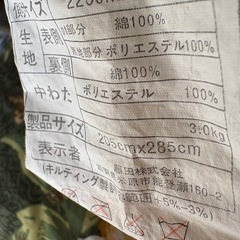 側サイズ
生地 表側 柄部分 綿100%
無地部分 ポリエステル100%
裏側 綿100%
中わた ポリエステル 100%
3.0kg
製品サイズ 205cm×285cm
表示者 株式会社
米原市能登瀬160-2
(キルティング製
範囲+5%-3%)